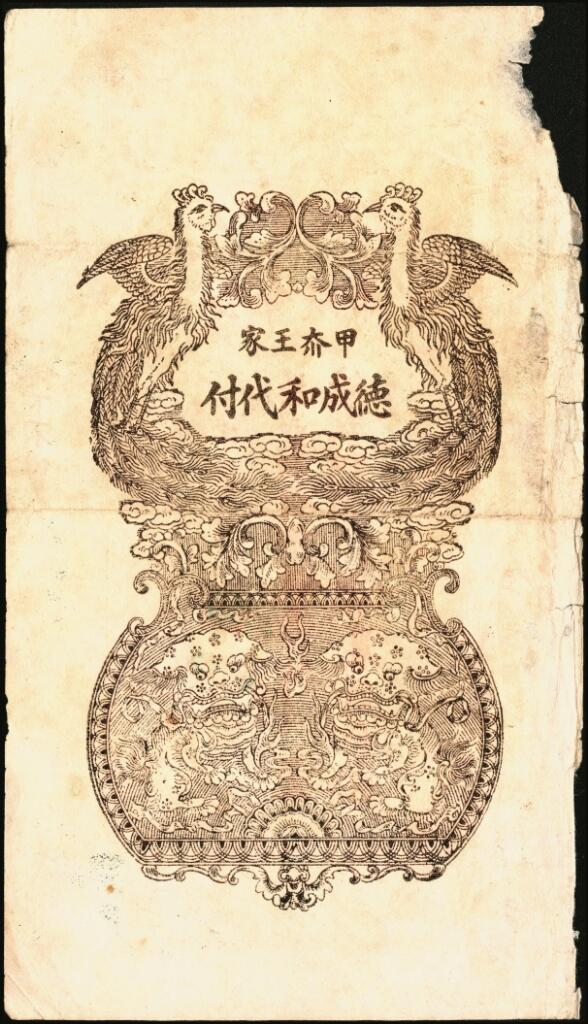 甲夼王家
德成和代付